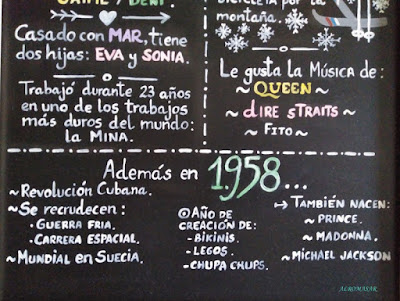 JAIME Y DENI.
Casado con MAR, tiene
dos hijas: EVA y SONIA.
Trabajó durante 23 años
en uno de los trabajos
más duros del mundo:
la MINA.
BICICLETA POR LA
montaña.
Le gusta la Música de:
~ QUEEN ~
~ dIRE sTRAITS ~
~ FITO ~
Además en 1958...
~Revolución Cubana.
~Se recrudecen:
· GUERRA FRIA.
· CARRERA ESPACIAL.
~MUNDIAL en SUECIA.
AÑO de
CREACIÓN DE:
- BIKINIS.
- LEGOS.
- CHUPA CHUPS.
→ TAMBIÉN NACEN:
~ PRINCE.
~ MADONNA.
~ MICHAEL JACKSON
ACROMAXAR